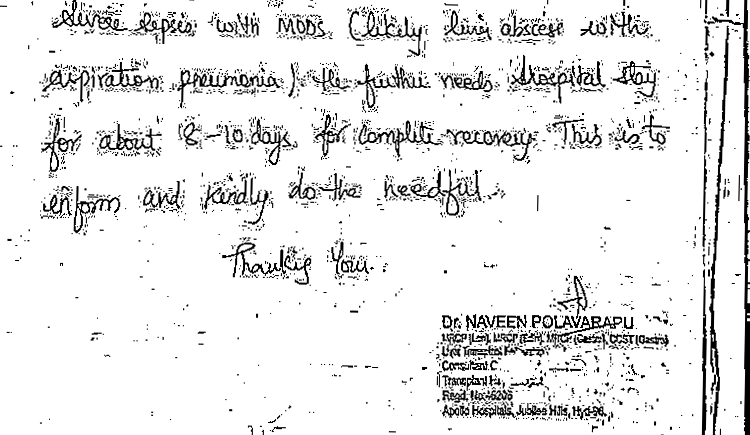 Severe sepsis with MODS (likely liver abscess with
aspiration pneumonia). He further needs Hospital stay
for about 8-10 days, for complete recovery. This is to
inform and kindly do the needful.
Thanking You.
Dr. NAVEEN POLAVARAPU
MRCP (Lon), MRCP (Edin), MRCP (Gastro), CCST (Gastro)
Liver Transplant
Consultant
Transplant
Regd. No:
Apollo Hospitals, Jubilee Hills, Hyd-96.